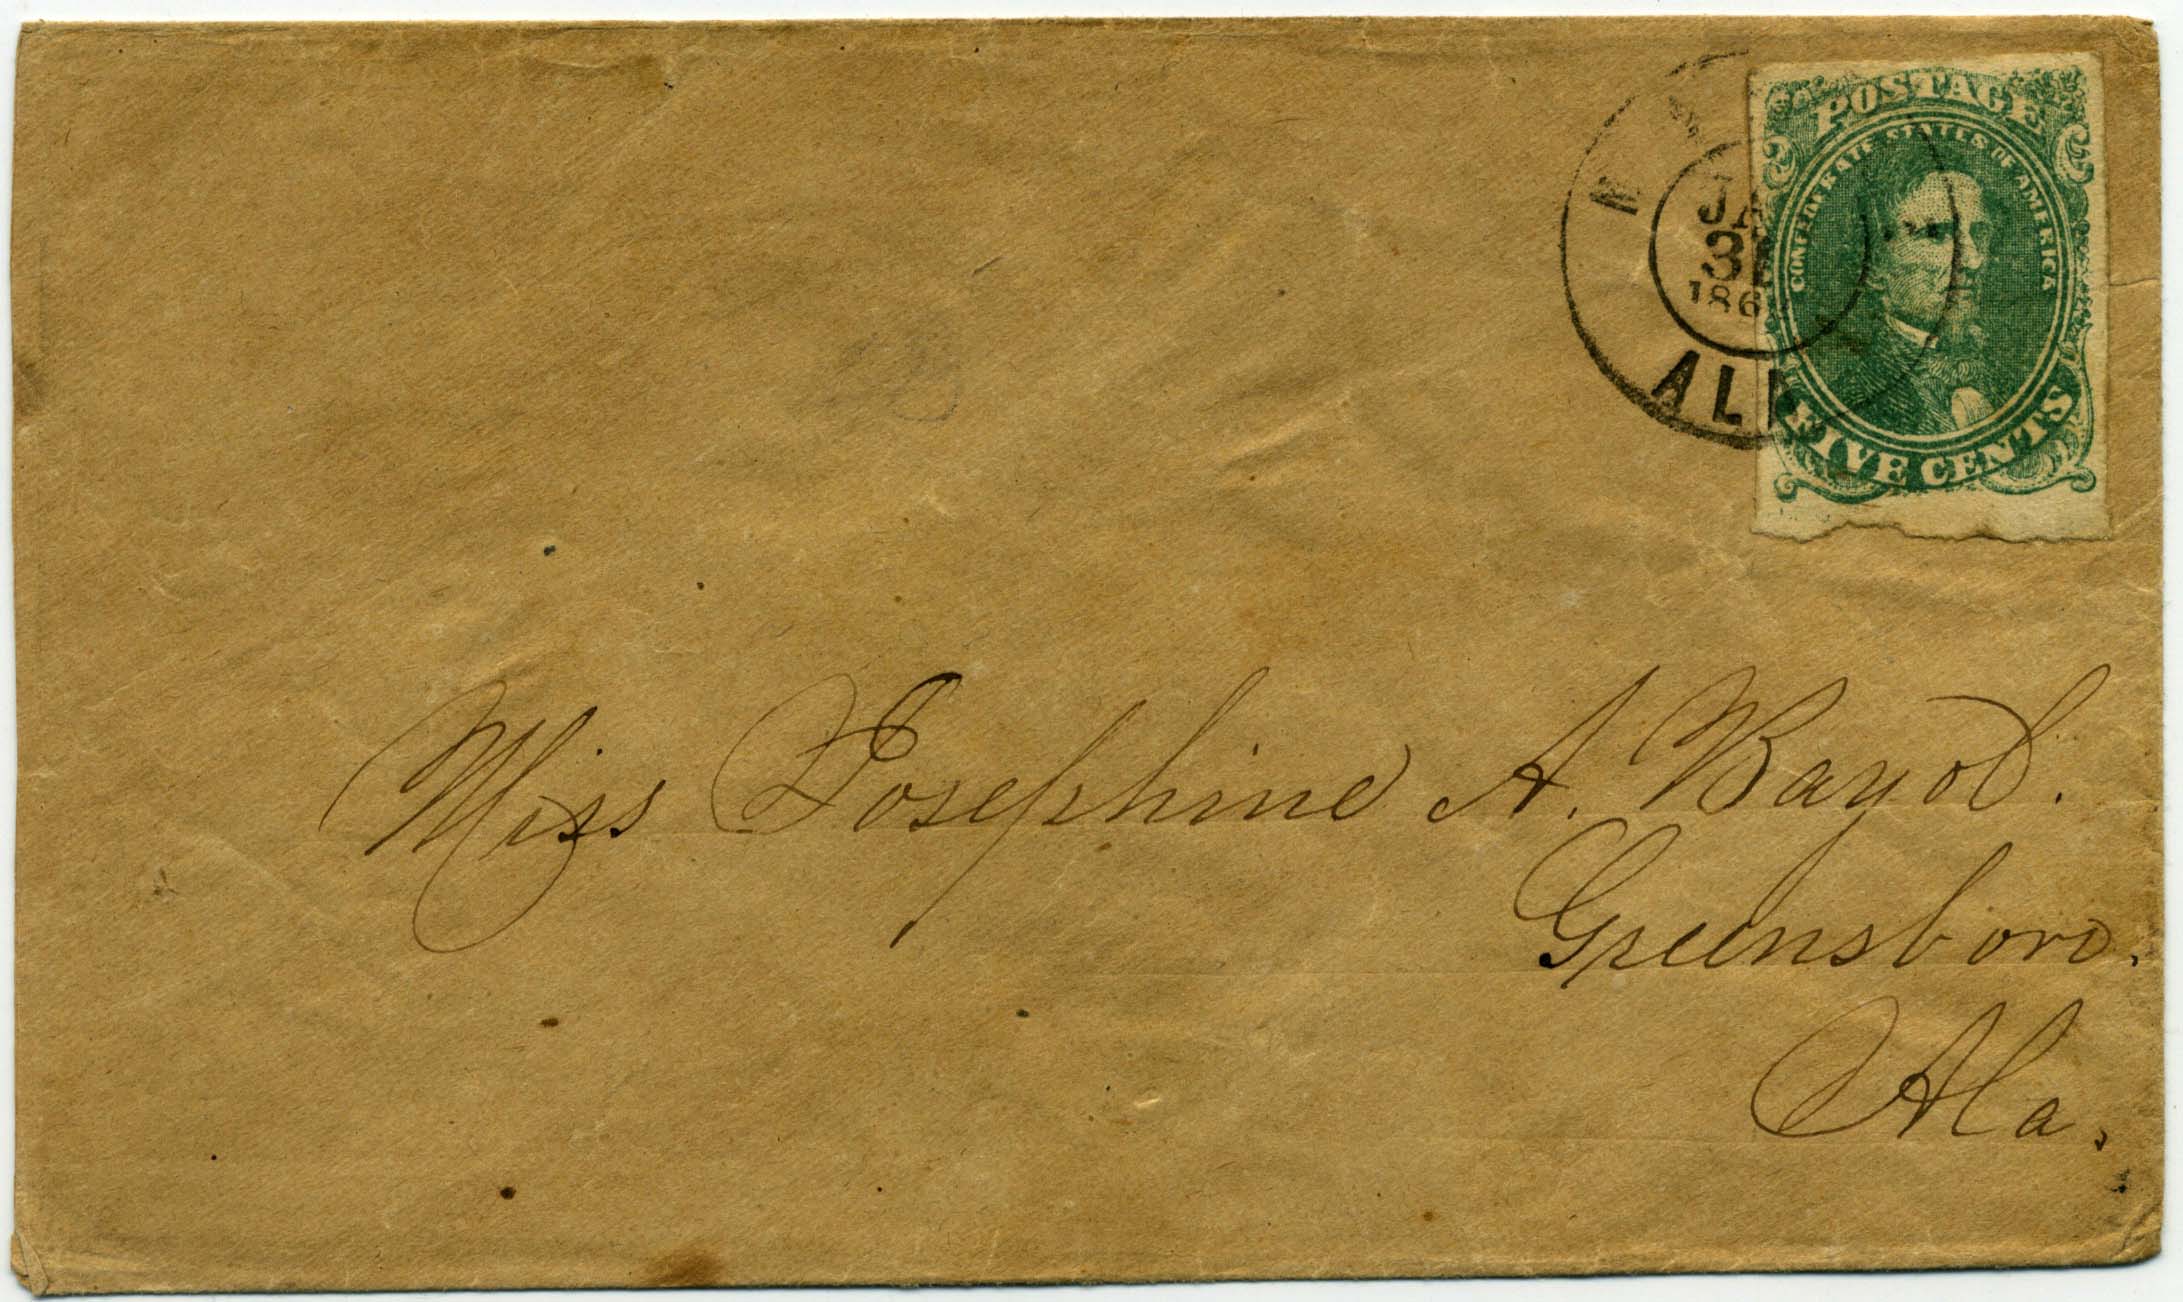 POSTAGE
CONFEDERATE STATES OF AMERICA
FIVE CENTS
31
Miss Josephine A. Bayol.
Greensboro.
Ala.